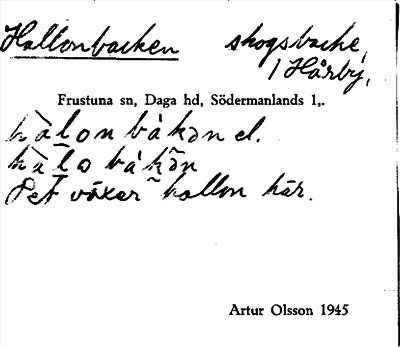 Hallonbacken skogsbacke,
i Hårby,
Frustuna sn, Daga hd, Södermanlands l,.
hàlonbákən el.
hàlobákən
Det växer hallon här.
Artur Olsson 1945